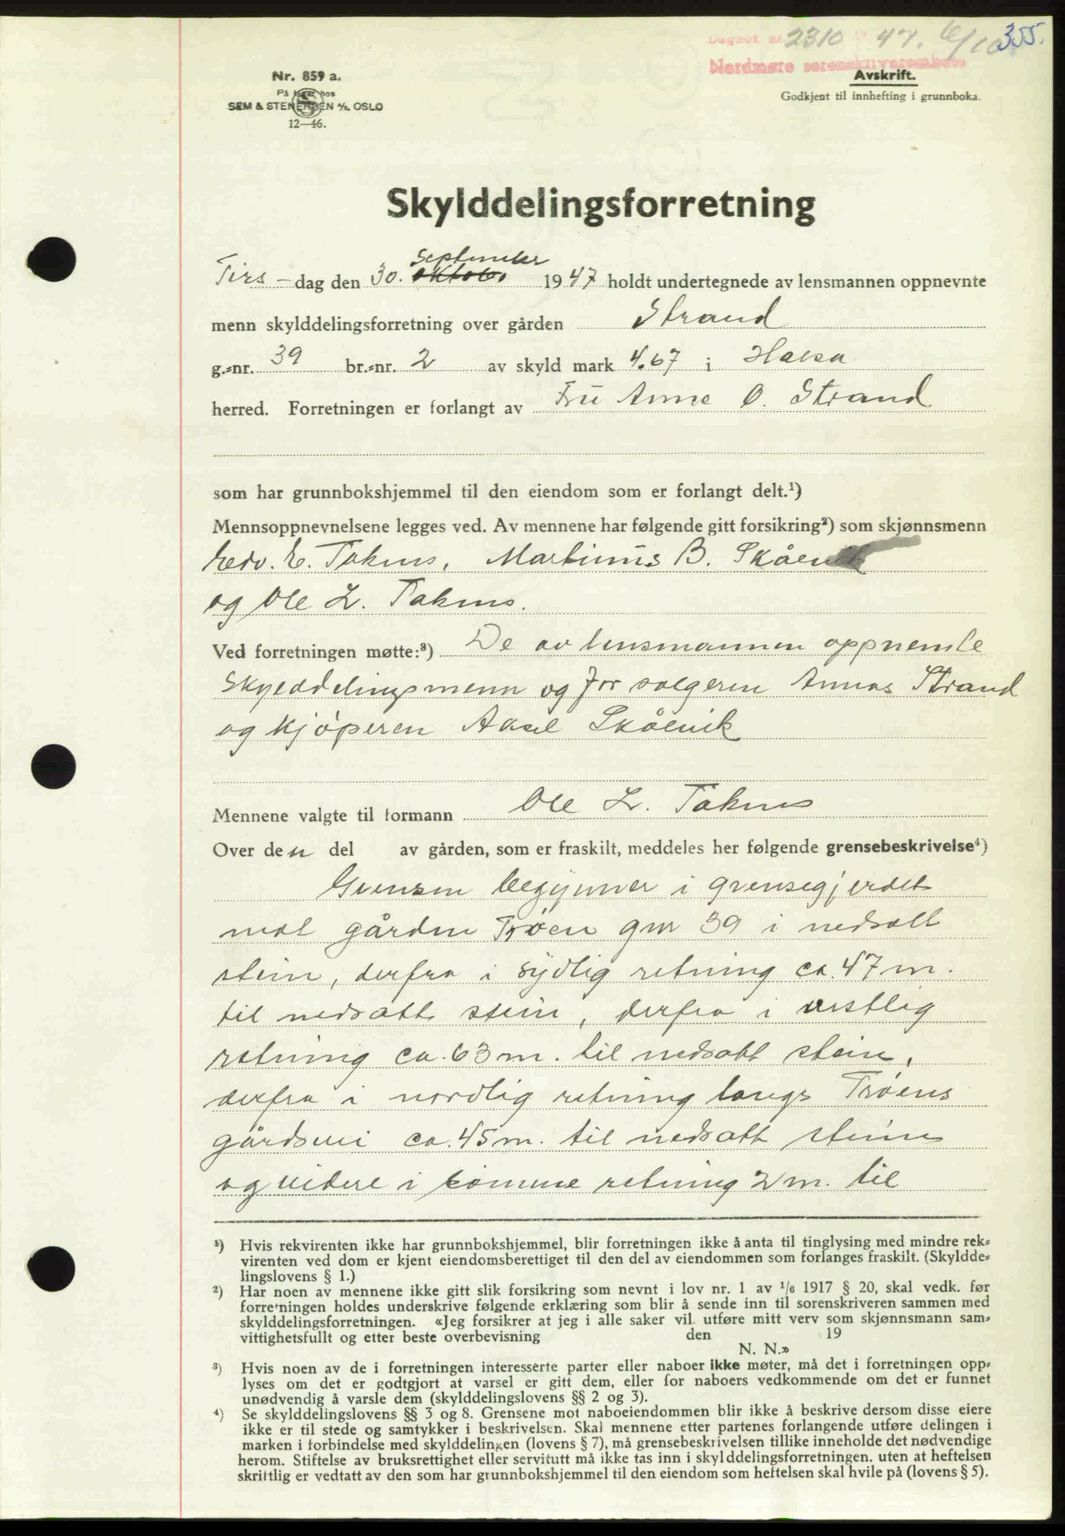 Dagbok nr. 2310 47. 6/10 355.
Nordmøre sorenskriverembete
Nr. 859 a.
På lager hos
SEM & STENERSEN A/S, OSLO
12—46.
Avskrift.
Godkjent til innhefting i grunnboka.
Skylddelingsforretning
september
Tirs-dag den 30. oktober 1947 holdt undertegnede av lensmannen oppnevnte
menn skylddelingsforretning over gården Strand
g.-nr. 39 br.-nr. 2 av skyld mark 4.67 i Halsa
herred. Forretningen er forlangt av Fru Anne O. Strand
som har grunnbokshjemmel til den eiendom som er forlangt delt.¹)
Mennsoppnevnelsene legges ved. Av mennene har følgende gitt forsikring²) som skjønnsmenn
Edv. E. Taknes, Martinus B. Skålvik
og Ole L. Taknes.
Ved forretningen møtte:³) De av lensmannen oppnemte
skylddelingsmenn og for selgeren Annas Strand
og kjøperen Aksel Skålvik
Mennene valgte til formann Ole L. Taknes
Over den del av gården, som er fraskilt, meddeles her følgende grensebeskrivelse⁴)
Grensen begynner i grensegjerdet
mot gården Trøen gnr 39 i nedsatt
stein, derfra i sydlig retning ca. 47 m.
til nedsatt stein, derfra i vestlig
retning ca. 63 m. til nedsatt stein,
derfra i nordlig retning langs Trøens
gårdsvei ca. 45 m. til nedsatt stein
og videre i samme retning 2 m. til
¹) Hvis rekvirenten ikke har grunnbokshjemmel, blir forretningen ikke å anta til tinglysing med mindre rek-
virenten ved dom er kjent eiendomsberettiget til den del av eiendommen som forlanges fraskilt. (Skyldde-
lingslovens § 1.)
²) Har noen av mennene ikke gitt slik forsikring som nevnt i lov nr. 1 av 1/6 1917 § 20, skal vedk. før
forretningen holdes underskrive følgende erklæring som blir å sende inn til sorenskriveren sammen med
skylddelingsforretningen. «Jeg forsikrer at jeg i alle saker vil utføre mitt verv som skjønnsmann sam-
vittighetsfullt og etter beste overbevisning den 19
N. N.»
³) Hvis noen av de i forretningen interesserte parter eller naboer ikke møter, må det i forretningen opp-
lyses om det er godtgjort at varsel er gitt dem, eller for naboers vedkommende om det er funnet
unødvendig å varsle dem (skylddelingslovens §§ 2 og 3).
⁴) Se skylddelingslovens §§ 3 og 8. Grensene mot naboeiendommen blir ikke å beskrive dersom disse eiere
ikke er til stede og samtykker i beskrivelsen. Skal mennene etter partenes forlangende utføre delingen i
marken i forbindelse med skylddelingen (lovens § 7), må grensebeskrivelsen tillike inneholde det nødvendige
herom. Stiftelse av bruksrettighet eller servitutt må ikke tas inn i skylddelingsforretningen, uten at heftelsen
skriftlig er vedtatt av den som har grunnbokshjemmel til den eiendom som heftelsen skal hvile på (lovens § 5).